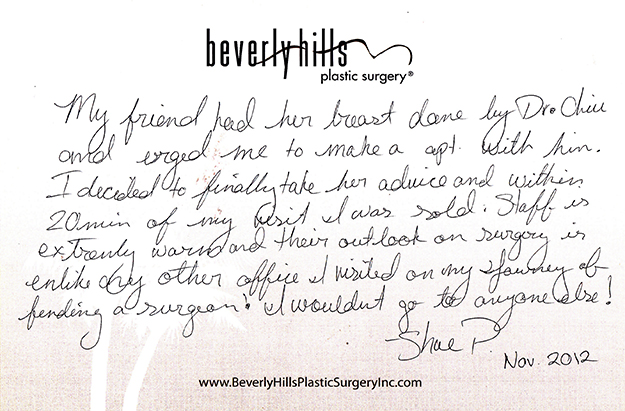 beverly hills
plastic surgery®
My friend had her breast done by Dr. Chiu
and urged me to make a apt. with him.
I decided to finally take her advice and within
20min of my visit I was sold. Staff is
extremly warm and their outlook on surgery is
unlike any other office I visited on my journey of
finding a surgeon! I wouldn't go to anyone else!
Shae P.
Nov. 2012
www.BeverlyHillsPlasticSurgeryInc.com